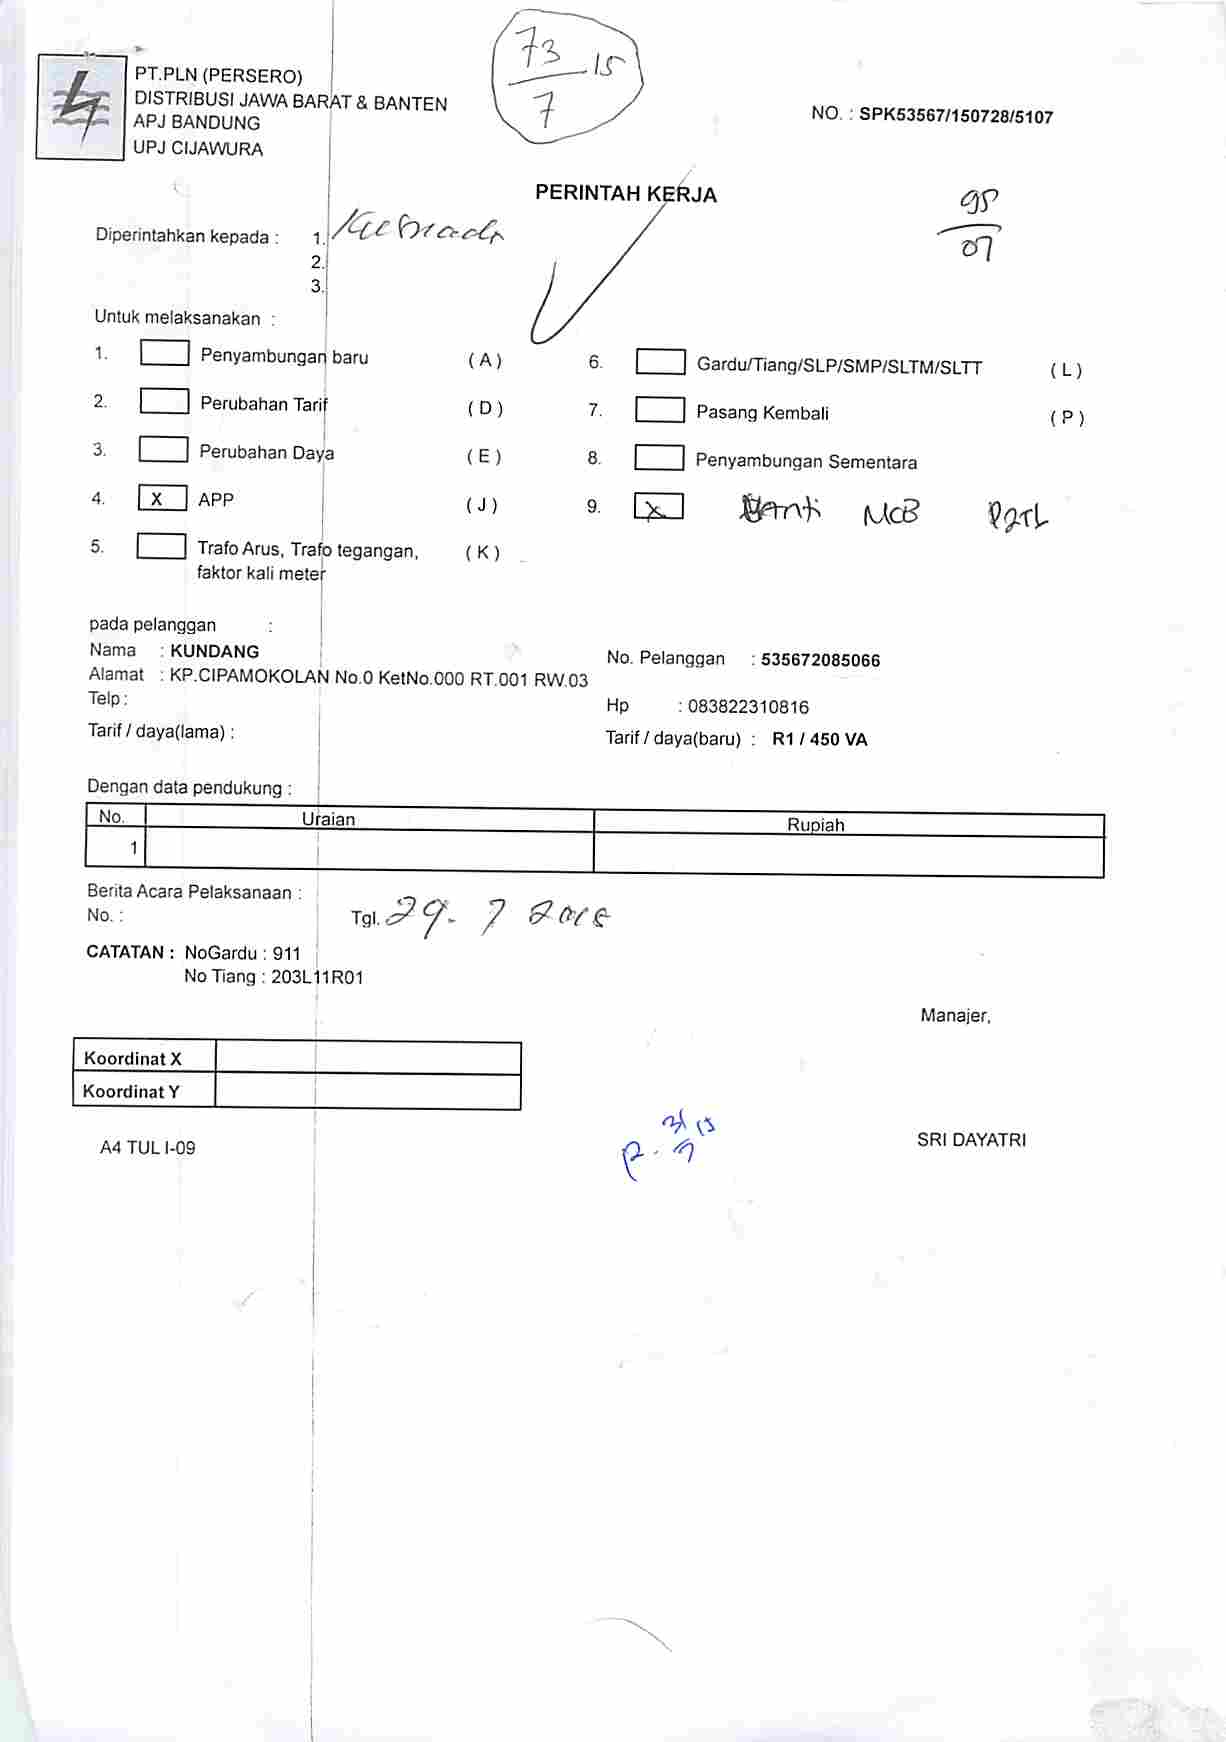 73 15
7
PT.PLN (PERSERO)
DISTRIBUSI JAWA BARAT & BANTEN
APJ BANDUNG
UPJ CIJAWURA
NO. : SPK53567/150728/5107
PERINTAH KERJA
95
07
Diperintahkan kepada : 1.
2.
3.
Untuk melaksanakan :
1. Penyambungan baru ( A )
2. Perubahan Tarif ( D )
3. Perubahan Daya ( E )
4. X APP ( J )
5. Trafo Arus, Trafo tegangan, ( K )
faktor kali meter
6. Gardu/Tiang/SLP/SMP/SLTM/SLTT ( L )
7. Pasang Kembali ( P )
8. Penyambungan Sementara
9. X Ganti MCB P2TL
pada pelanggan :
Nama : KUNDANG
Alamat : KP.CIPAMOKOLAN No.0 KetNo.000 RT.001 RW.03
Telp :
Tarif / daya(lama) :
No. Pelanggan : 535672085066
Hp : 083822310816
Tarif / daya(baru) : R1 / 450 VA
Dengan data pendukung :
No. Uraian Rupiah
1
Berita Acara Pelaksanaan :
No. : Tgl. 29. 7 2015
CATATAN : NoGardu : 911
No Tiang : 203L11R01
Manajer,
Koordinat X
Koordinat Y
SRI DAYATRI
A4 TUL I-09